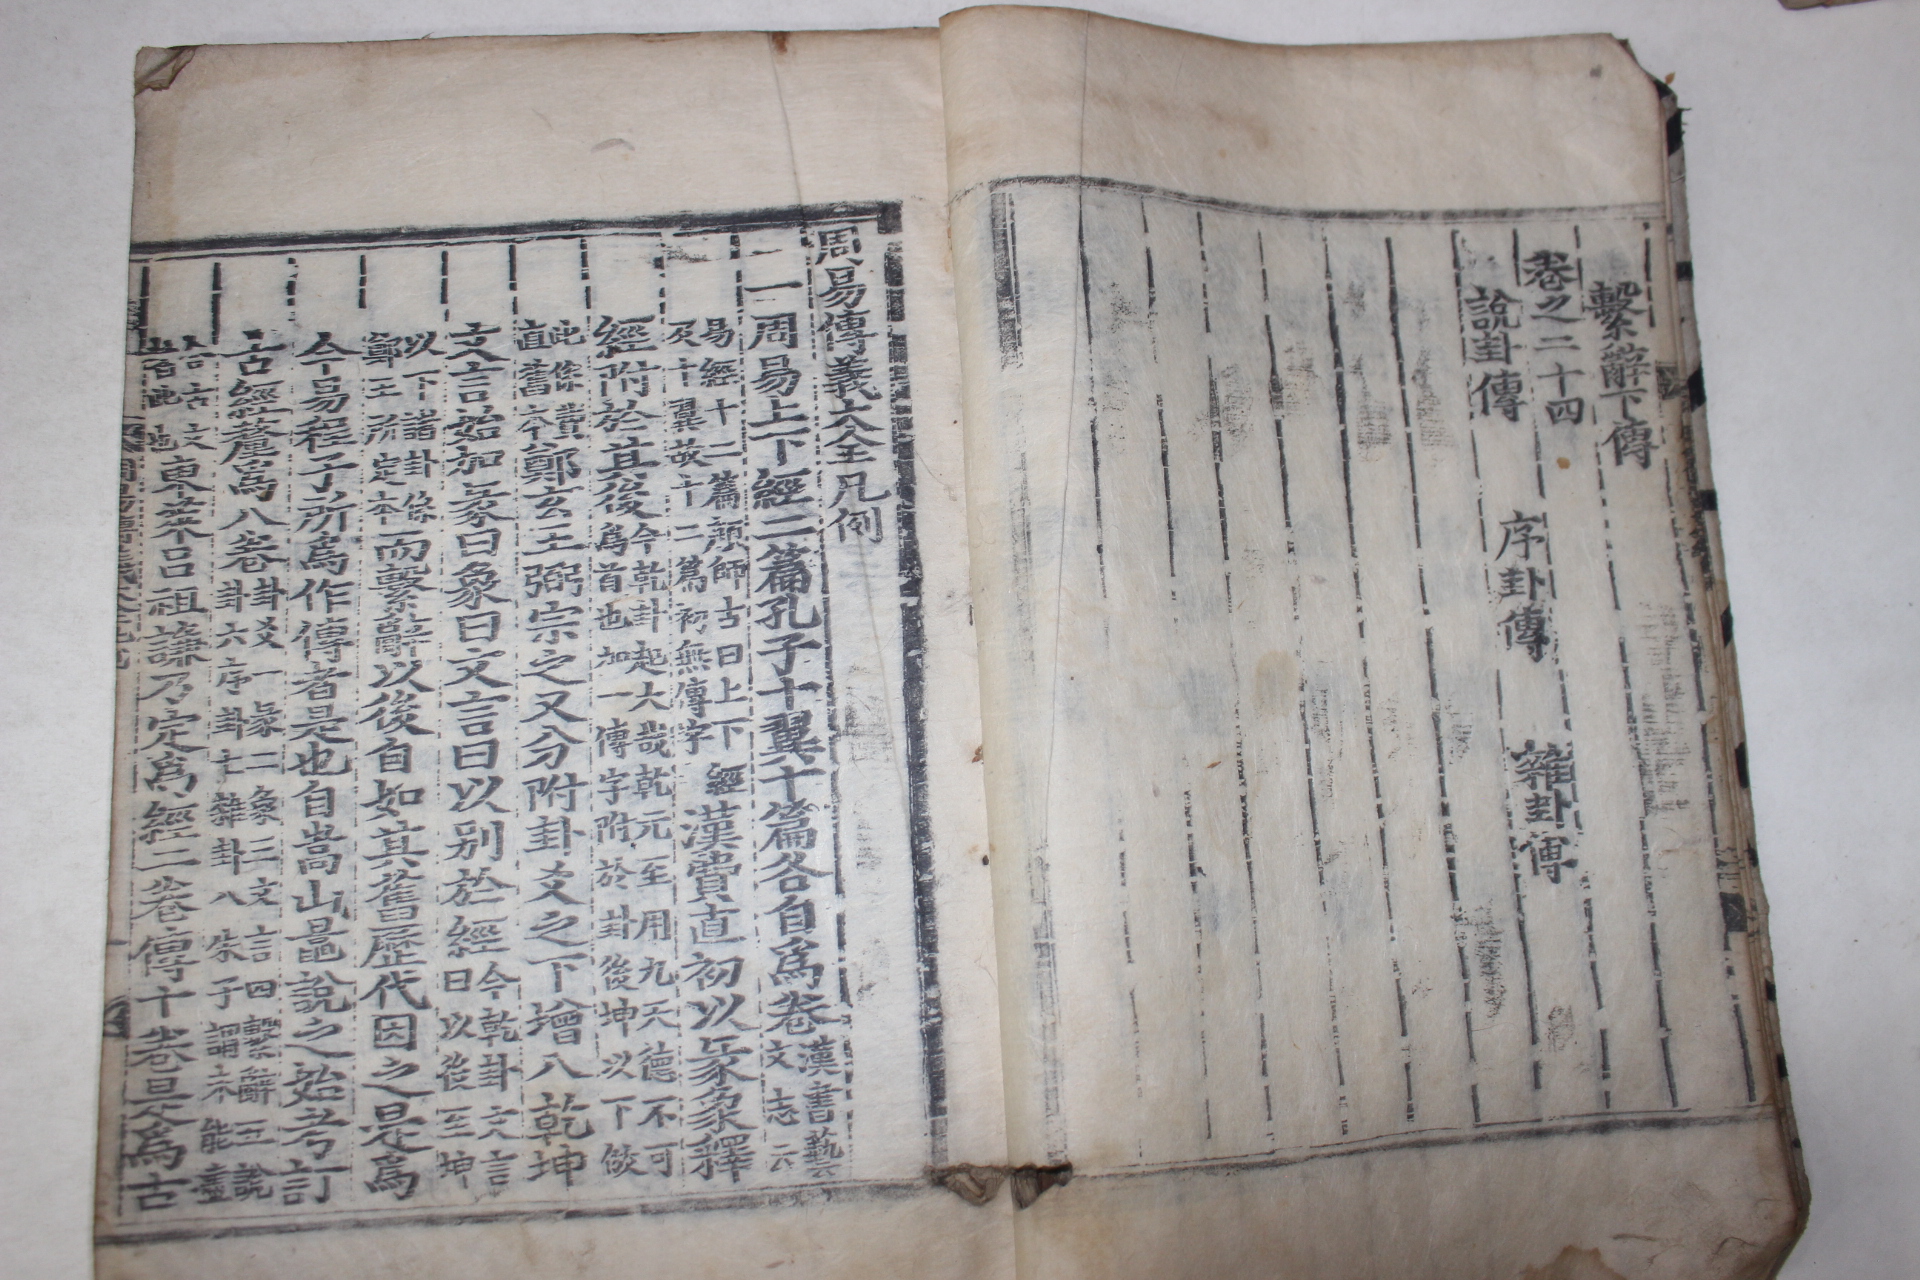 繫辭下傳
卷之二十四
說卦傳 序卦傳 雜卦傳
周易傳義大全凡例
一周易上下經二篇孔子十翼十篇各自爲卷漢書藝文志云
易經十二篇顏師古曰上下經及十翼故十二篇初無傳字漢費直初以彖象釋
經附於其後今乾卦起大哉乾元至用九天德不可爲首也加一傳字附於卦後坤以下倣
此條費直舊本鄭玄王弼宗之又分附卦爻之下增入乾坤
文言始加彖曰象曰文言曰以別於經今乾卦文言曰以後至坤
以下諸卦條鄭王所定本而繫辭以後自如其舊歷代因之是爲
今易程子所爲作傳者是也自嵩山晁說之始考訂
古經釐爲八卷卦爻一彖二象三文言四繫辭五說卦六序卦七雜卦八朱子謂未能盡
合古文東萊呂祖謙乃定爲經二卷傳十卷是爲古